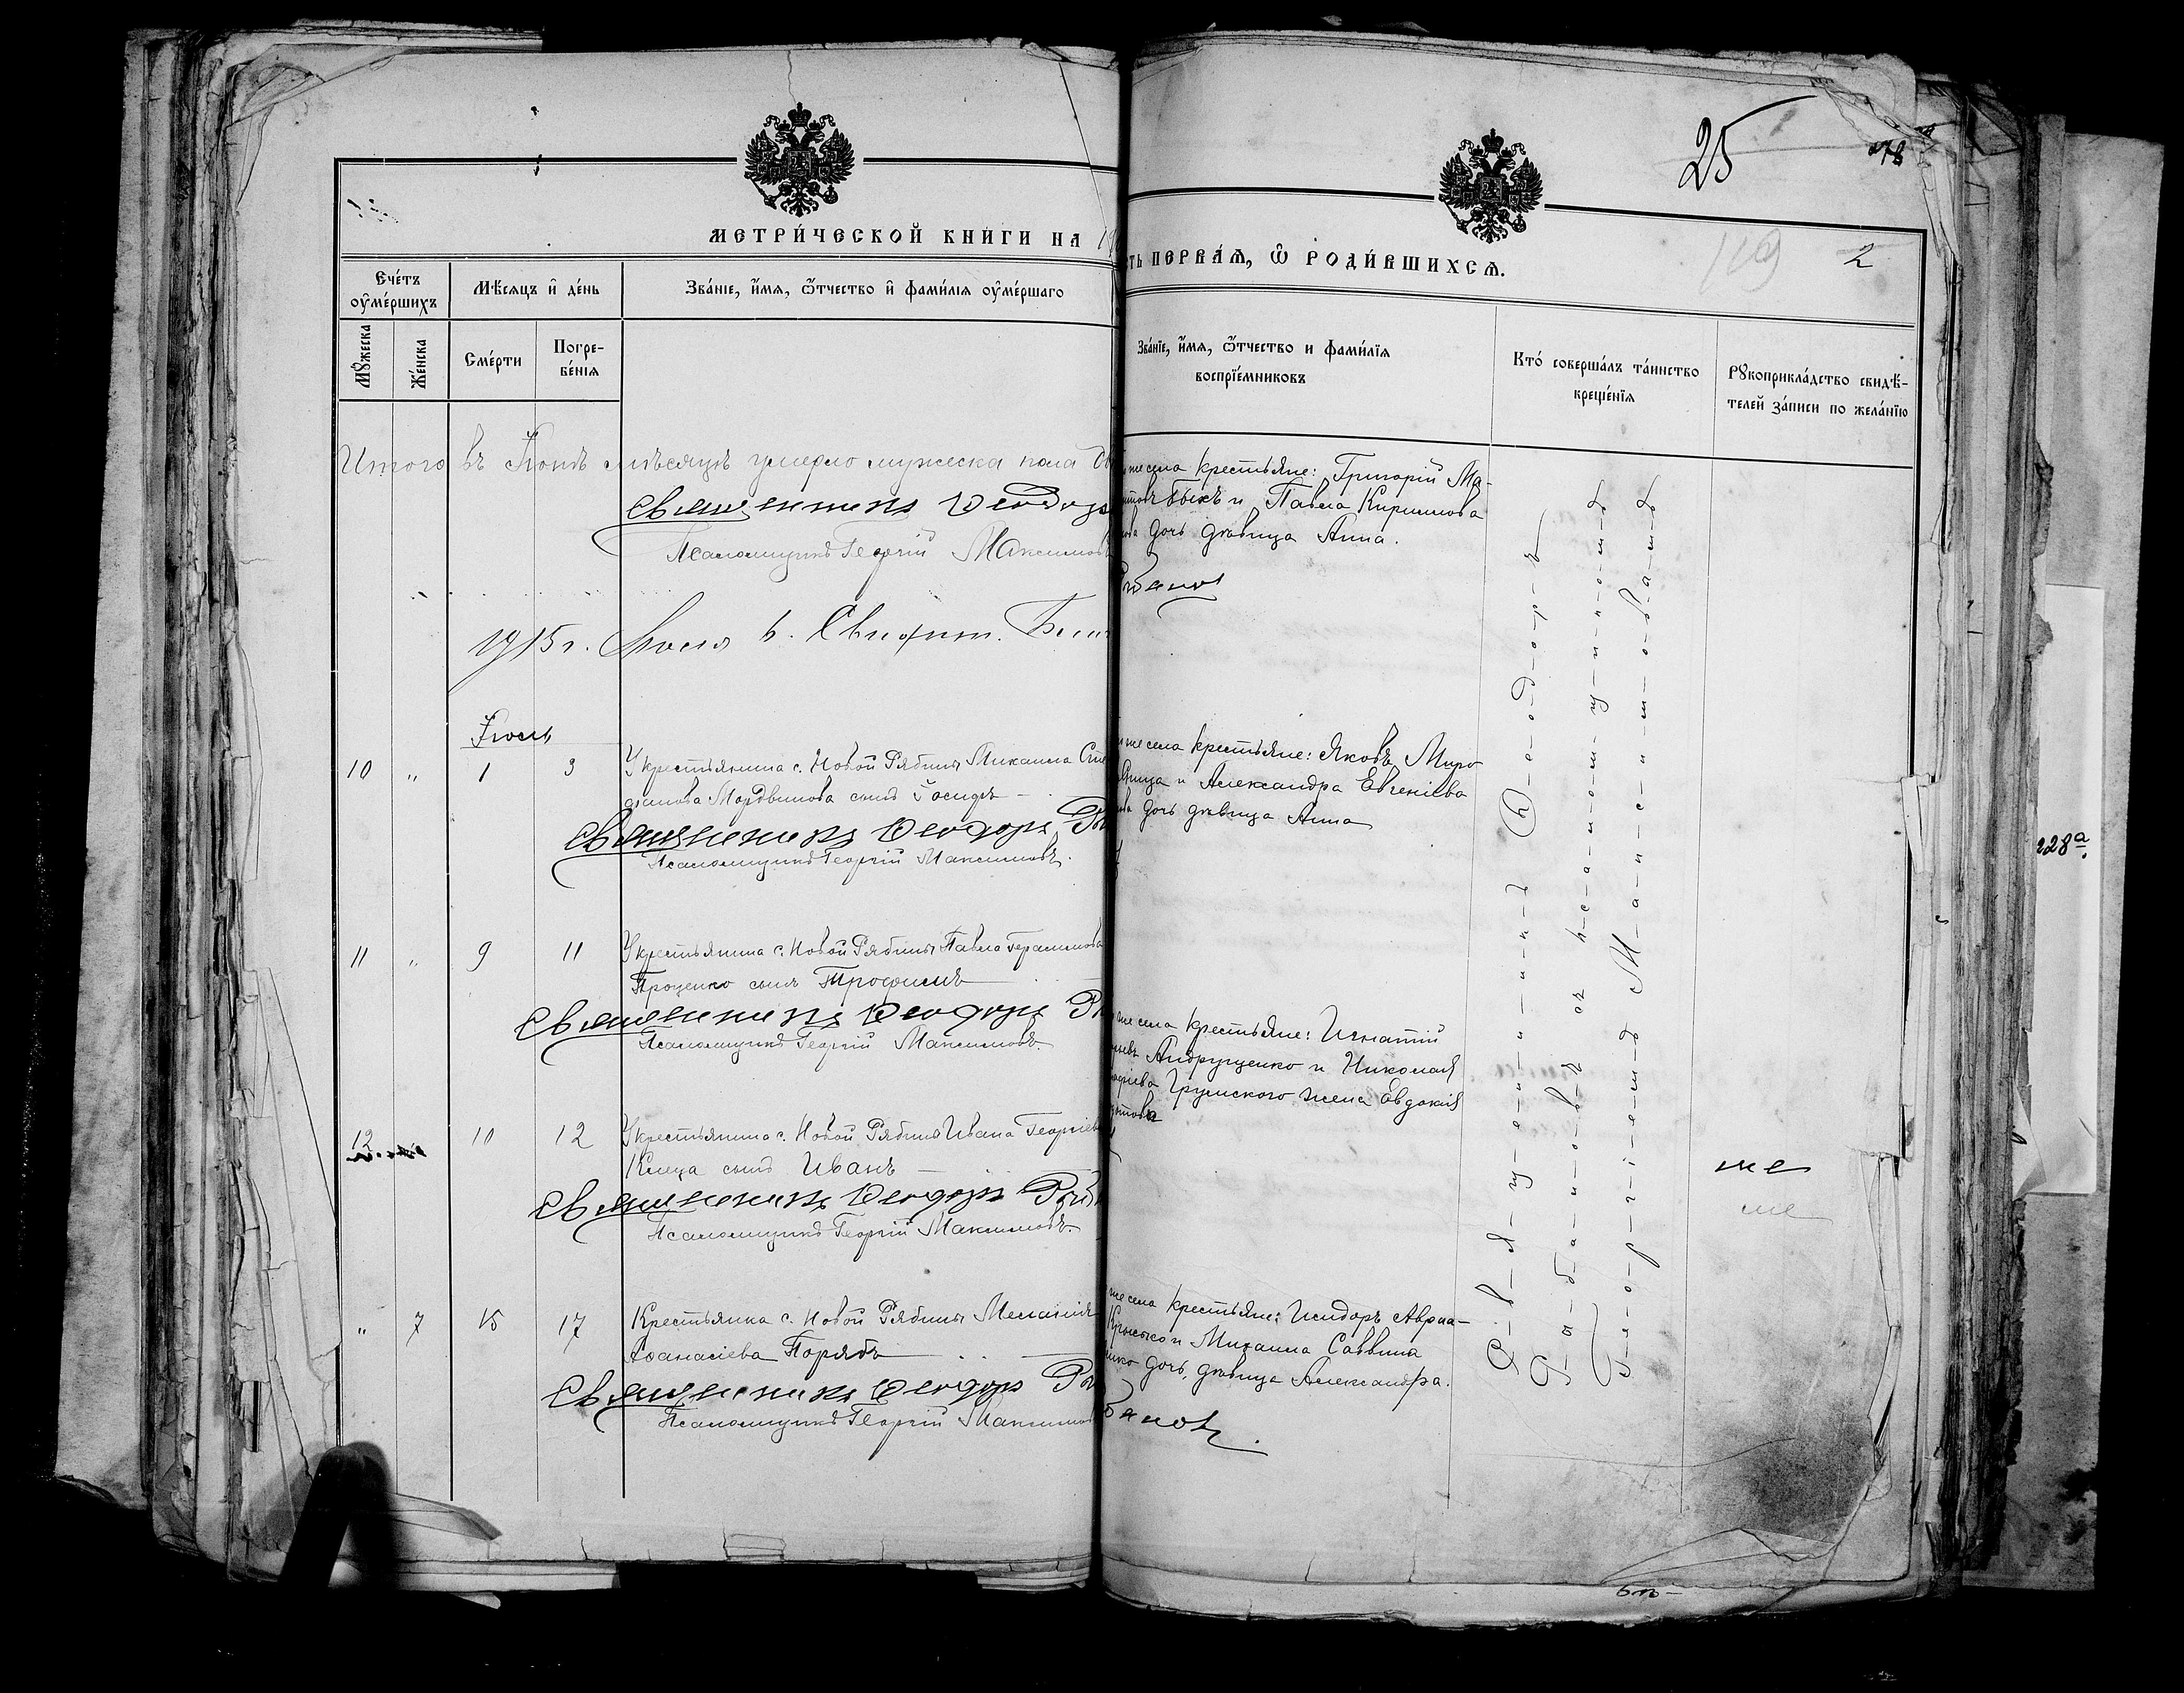 МЕТРИ́ЧЕСКОЙ КНИ́ГИ НА 19
Счéтъ ѹ҆ме́ршихъ
Мѣ́сяцъ и҆ де́нь
Зва́нїе, и҆́мя, ѻ҆́тчество и҆ фами́лїя ѹ҆ме́ршаго
Мꙋ́жеска
Же́нска
Сме́рти
Погре-
бе́нїя
Итого въ Іюнѣ мѣсяцѣ умерло мужеска пола
Священникъ Ѳеодоръ
Псаломщикъ Георгій Максимовъ
1915 г. Іюля
Іюль
10 " 1 3 У крестьянина с. Новой Рябины Михаила Сте
фанова Мордвинова сынъ Іосифъ
Священникъ Ѳеодоръ Ры
Псаломщикъ Георгій Максимовъ.
11 " 9 11 У крестьянина с. Новой Рябины Павла Герасимова
Проценко сынъ Трофимъ
Священникъ Ѳеодоръ Ры
Псаломщикъ Георгій Максимовъ.
12 10 12 У крестьянина с. Новой Рябины Ивана Георгіев
Клеца сынъ Иванъ
Священникъ Ѳеодоръ Рыб
Псаломщикъ Георгій Максимовъ.
" 7 15 17 Крестьянка с. Новой Рябины Меланія
Аѳанасіева Порядъ
Священникъ Ѳеодоръ Ры
Псаломщикъ Георгій Максимов
25
78
119
2
сть ПЕРВА́Я, Ѡ҆ РОДИ́ВШИХСЯ.
Зва́нїе, и҆́мя, ѻ҆́тчество и фами́лїя
воспрїе́мниковъ
Кто́ соверша́лъ та́инство
креще́нїя
Рꙋкоприкла́дство свидѣ́-
телей за́писи по жела́нїю
же села крестьяне: Григорій Ма-
Быкъ и Павла Кириллова
дочь дѣвица Анна.
баков
же села крестьяне: Яковъ Миро
и Александра Евгеніева
дочь дѣвица Анна
же села крестьяне: Игнатій
Андрущенко и Николая
Грумского жена Евдокія
же села крестьяне: Исидоръ Авраа-
и Михаила Саввина
дочь, дѣвица Александра.
бановъ.
С-в-я-щ-е-н-н-и-к-ъ Ѳ-е-о-д-о-р-ъ
Р-ы-б-а-н-о-в-ъ съ п-с-а-л-о-м-щ-и-к-о-м-ъ
Г-е-о-р-г-і-е-м-ъ М-а-к-с-и-м-о-в-ы-м-ъ
228а